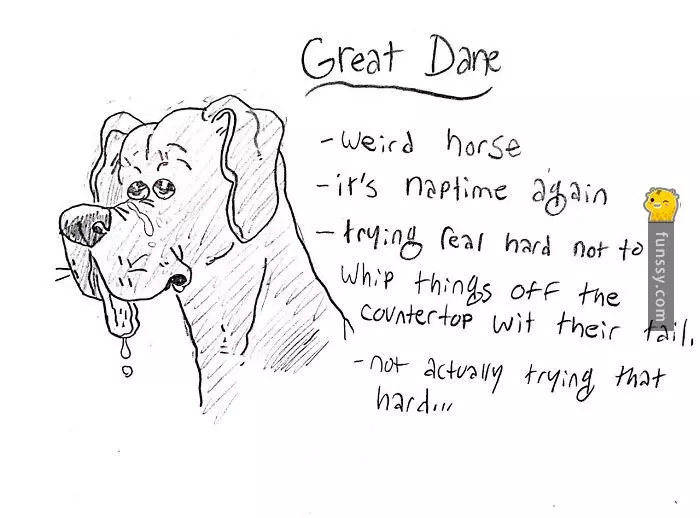 Great Dane
- weird horse
- it's naptime again
- trying real hard not to
whip things off the
countertop wit their tail.
- not actually trying that
hard...
funssy.com